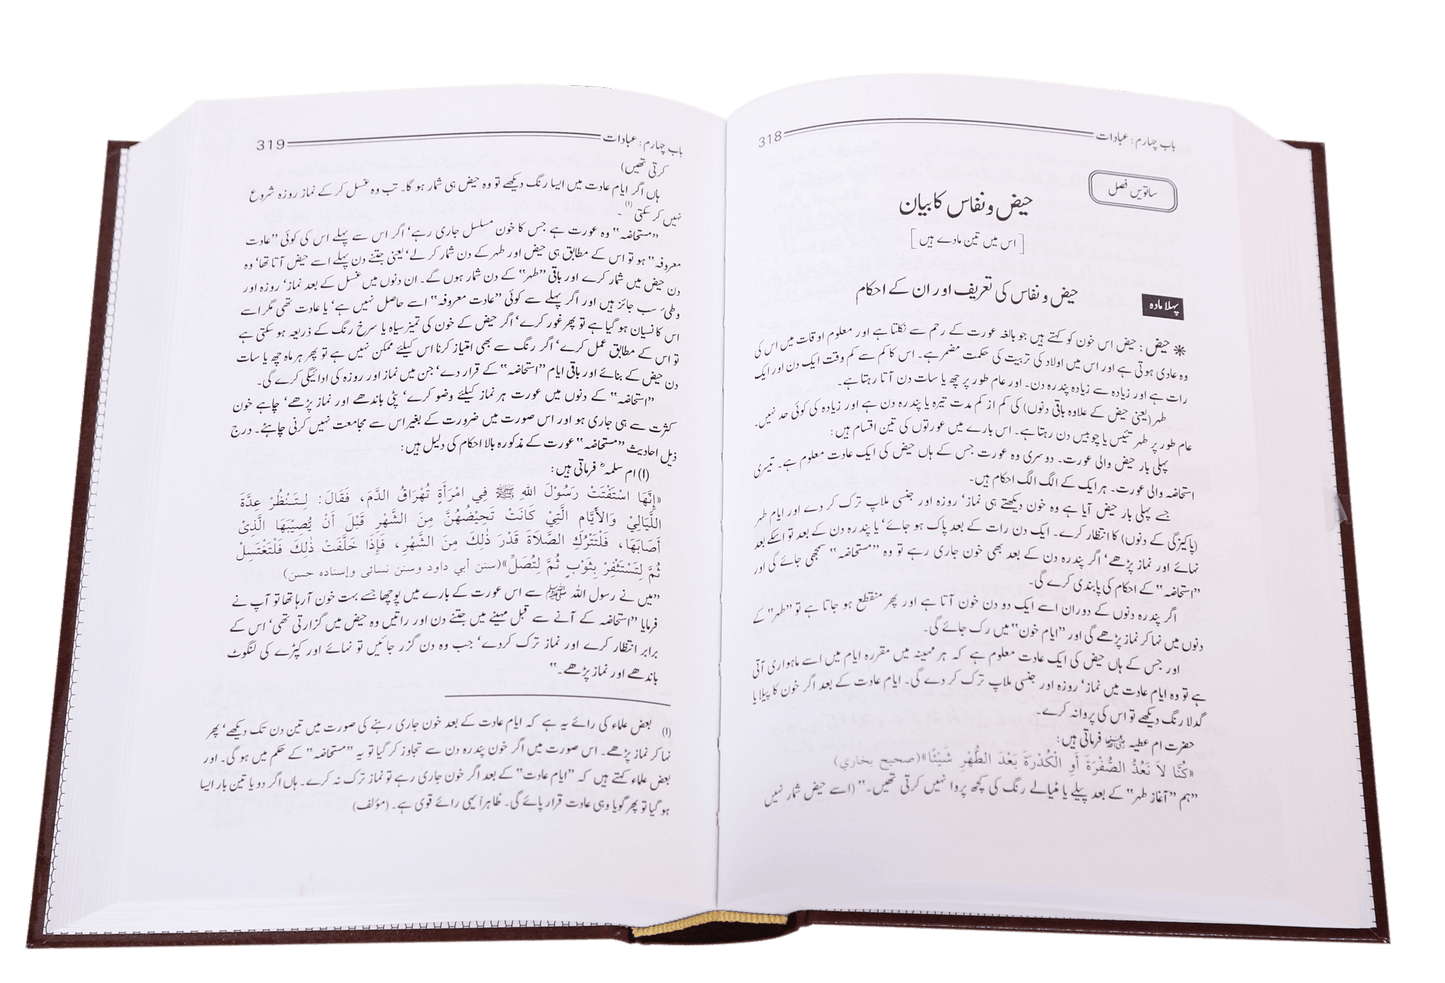 باب چہارم: عبادات 318
ساتویں فصل
حیض و نفاس کا بیان
[اس میں تین مادے ہیں]
پہلا مادہ
حیض و نفاس کی تعریف اور ان کے احکام
❋ حیض: حیض اس خون کو کہتے ہیں جو بالغہ عورت کے رحم سے نکلتا ہے اور معلوم اوقات میں اس کی
وہ عادی ہوتی ہے اور اس میں اولاد کی تربیت کی حکمت مضمر ہے۔ اس کا کم سے کم وقت ایک دن اور ایک
رات ہے اور زیادہ سے زیادہ پندرہ دن۔ اور عام طور پر چھ یا سات دن آتا رہتا ہے۔
طہر (یعنی حیض کے علاوہ باقی دنوں) کی کم از کم مدت تیرہ یا پندرہ دن ہے اور زیادہ کی کوئی حد نہیں۔
عام طور پر طہر تئیس یا چوبیس دن رہتا ہے۔ اس بارے میں عورتوں کی تین اقسام ہیں:
پہلی بار حیض والی عورت۔ دوسری وہ عورت جس کے ہاں حیض کی ایک عادت معلوم ہے۔ تیسری
استحاضہ والی عورت۔ ہر ایک کے الگ الگ احکام ہیں۔
جسے پہلی بار حیض آیا ہے وہ خون دیکھتے ہی نماز‘ روزہ اور جنسی ملاپ ترک کر دے اور ایام طہر
(پاکیزگی کے دنوں) کا انتظار کرے۔ ایک دن رات کے بعد پاک ہو جائے‘ یا پندرہ دن کے بعد تو اسکے بعد
نہائے اور نماز پڑھے‘ اگر پندرہ دن کے بعد بھی خون جاری رہے تو وہ ”مستحاضہ“ سمجھی جائے گی اور
”استحاضہ“ کے احکام کی پابندی کرے گی۔
اگر پندرہ دنوں کے دوران اسے ایک دو دن خون آتا ہے اور پھر منقطع ہو جاتا ہے تو ”طہر“ کے
دنوں میں نہا کر نماز پڑھے گی اور ”ایام خون“ میں رک جائے گی۔
اور جس کے ہاں حیض کی ایک عادت معلوم ہے کہ ہر مہینہ میں مقررہ ایام میں اسے ماہواری آتی
ہے تو وہ ایام عادت میں نماز‘ روزہ اور جنسی ملاپ ترک کر دے گی۔ ایام عادت کے بعد اگر خون کا پیلا یا
گدلا رنگ دیکھے تو اس کی پروا نہ کرے۔
حضرت ام عطیہ رضی اللہ عنہا فرماتی ہیں:
«كُنَّا لَا نَعُدُّ الصُّفْرَةَ أَوِ الْكُدْرَةَ بَعْدَ الطُّهْرِ شَيْئًا»(صحیح بخاری)
”ہم ”آغاز طہر“ کے بعد پیلے یا مٹیالے رنگ کی کچھ پروا نہیں کرتی تھیں۔“ (اسے حیض شمار نہیں
باب چہارم: عبادات 319
کرتی تھیں)
ہاں اگر ایام عادت میں ایسا رنگ دیکھے تو وہ حیض ہی شمار ہو گا۔ تب وہ غسل کر کے نماز روزہ شروع
نہیں کر سکتی(۱)۔
”مستحاضہ“ وہ عورت ہے جس کا خون مسلسل جاری رہے‘ اگر اس سے پہلے اس کی کوئی ”عادت
معروفہ“ ہو تو اس کے مطابق ہی حیض اور طہر کے دن شمار کر لے‘ یعنی جتنے دن پہلے اسے حیض آتا تھا‘ وہ
دن حیض میں شمار کرے اور باقی ”طہر“ کے دن شمار ہوں گے۔ ان دنوں میں غسل کے بعد نماز‘ روزہ اور
وطی سب جائز ہیں اور اگر پہلے سے کوئی ”عادت معروفہ“ اسے حاصل نہیں ہے‘ یا عادت تھی مگر اسے
اس کا نسیان ہو گیا ہے تو پھر غور کرے‘ اگر حیض کے خون کی تمیز سیاہ یا سرخ رنگ کے ذریعہ ہو سکتی ہے
تو اس کے مطابق عمل کرے‘ اگر رنگ سے بھی امتیاز کرنا اس کیلئے ممکن نہیں ہے تو پھر ہر ماہ چھ یا سات
دن حیض کے بنائے اور باقی ایام ”استحاضہ“ کے قرار دے‘ جن میں نماز اور روزہ کی ادائیگی کرے گی۔
”استحاضہ“ کے دنوں میں عورت ہر نماز کیلئے وضو کرے‘ پٹی باندھے اور نماز پڑھے‘ چاہے خون
کثرت سے ہی جاری ہو اور اس صورت میں ضرورت کے بغیر اس سے مجامعت نہیں کرنی چاہئے۔ درج
ذیل احادیث ”مستحاضہ“ عورت کے مذکورہ بالا احکام کی دلیل ہیں:
(۱) ام سلمہ فرماتی ہیں:
«إِنَّهَا اسْتَفْتَتْ رَسُوْلَ اللهِ ﷺ فِي امْرَأَةٍ تُهْرَاقُ الدَّمَ، فَقَالَ: لِتَنْظُرْ عِدَّةَ
اللَّيَالِيْ وَالأَيَّامِ الَّتِيْ كَانَتْ تَحِيْضُهُنَّ مِنَ الشَّهْرِ قَبْلَ أَنْ يُّصِيْبَهَا الَّذِيْ
أَصَابَهَا، فَلْتَتْرُكِ الصَّلَاةَ قَدْرَ ذَلِكَ مِنَ الشَّهْرِ، فَإِذَا خَلَّفَتْ ذٰلِكَ فَلْتَغْتَسِلْ
ثُمَّ لِتَسْتَثْفِرْ بِثَوْبٍ ثُمَّ لِتُصَلِّ»(سنن أبي داود وسنن نسائی وإسناده حسن)
”میں نے رسول اللہ ﷺ سے اس عورت کے بارے میں پوچھا جسے بہت خون آرہا تھا تو آپ نے
فرمایا ”استحاضہ کے آنے سے قبل مہینے میں جتنے دن اور راتیں وہ حیض میں گزارتی تھی‘ اس کے
برابر انتظار کرے اور نماز ترک کردے‘ جب وہ دن گزر جائیں تو نہائے اور کپڑے کی لنگوٹ
باندھے اور نماز پڑھے۔“
(۱) بعض علماء کی رائے یہ ہے کہ ایام عادت کے بعد خون جاری رہنے کی صورت میں تین دن تک دیکھے‘ پھر
نہا کر نماز پڑھے۔ اس صورت میں اگر خون پندرہ دن سے تجاوز کر گیا تو یہ ”مستحاضہ“ کے حکم میں ہو گی۔ اور
بعض علماء کہتے ہیں کہ ”ایام عادت“ کے بعد اگر خون جاری رہے تو نماز ترک نہ کرے۔ ہاں اگر دو یا تین بار ایسا
ہو گیا تو پھر گویا وہی عادت قرار پائے گی۔ ظاہراً یہی رائے قوی ہے۔ (مؤلف)